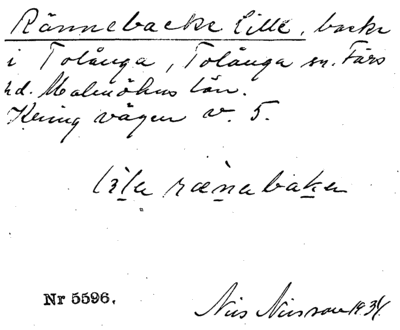 Rännebacke Lille, backe
i Tolånga, Tolånga sn. Färs
hd. Malmöhus län.
Kring vägen v. 5.
lila rænabakan
Nr 5596.
Nils Nilsson 1934.